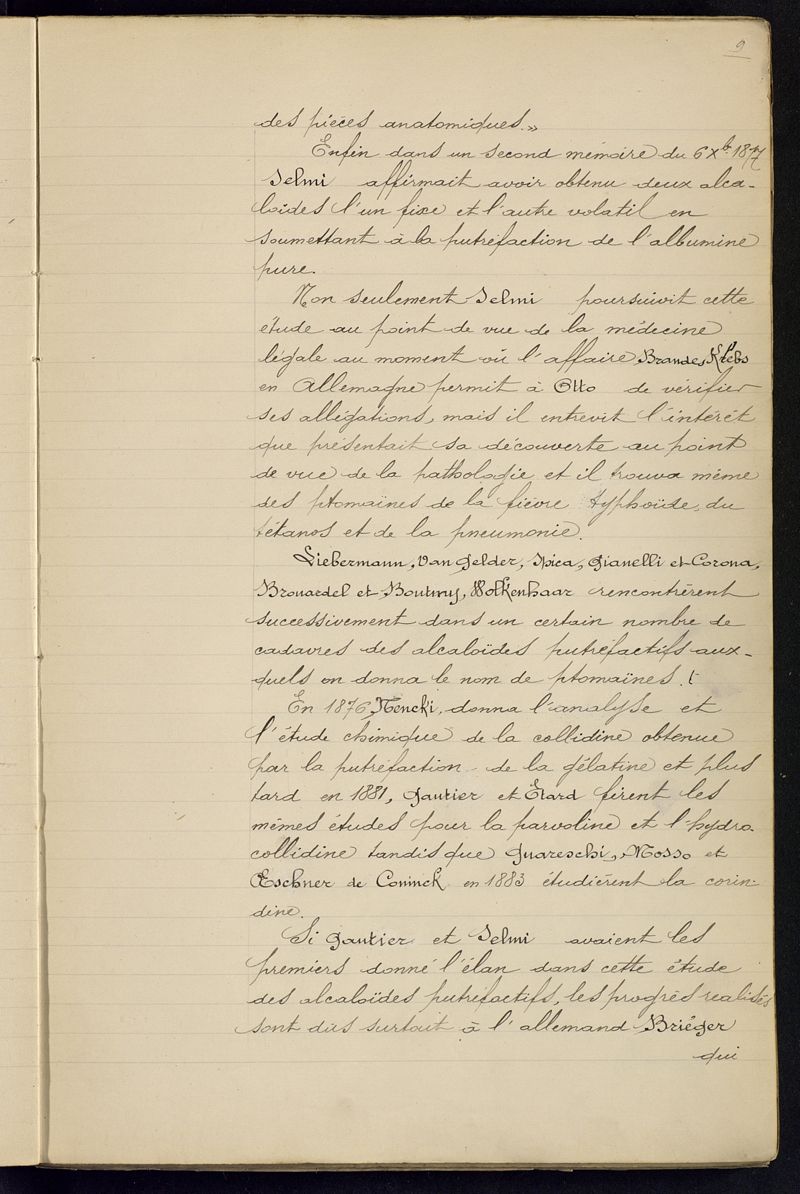 9
des pièces anatomiques.»
Enfin dans un second mémoire du 6 Xb. 1877
Selmi affirmait avoir obtenu deux alca-
loïdes l'un fixe et l'autre volatil en
soumettant à la putréfaction de l'albumine
pure.
Non seulement Selmi poursuivit cette
étude au point de vue de la médecine
légale au moment où l'affaire Brandes Krebs
en Allemagne permit à Otto de vérifier
ses allégations, mais il entrevit l'intérêt
que présentait sa découverte au point
de vue de la pathologie et il trouva même
des ptomaïnes de la fièvre typhoïde, du
tétanos et de la pneumonie.
Liebermann, Van Gelder, Spica, Gianelli et Corona,
Brouardel et Boutmy, Wolkenhaar rencontrèrent
successivement dans un certain nombre de
cadavres des alcaloïdes putréfactifs aux-
quels on donna le nom de ptomaïnes.
En 1876, Nencki, donna l'analyse et
l'étude chimique de la collidine obtenue
par la putréfaction de la gélatine et plus
tard en 1881, Gautier et Étard firent les
mêmes études pour la parvoline et l'hydro-
collidine tandis que Guareschi, Mosso et
Œschner de Coninck en 1883 étudièrent la corin-
dine.
Si Gautier et Selmi avaient les
premiers donné l'élan dans cette étude
des alcaloïdes putréfactifs, les progrès réalisés
sont dûs surtout à l'allemand Briéger
qui